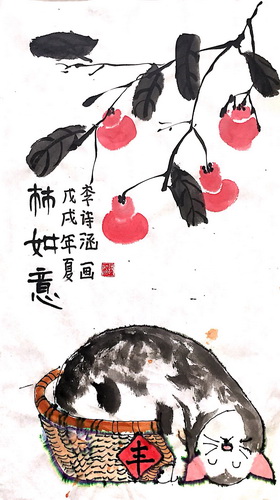 林如意
戊戌年夏
李诗涵画
丰